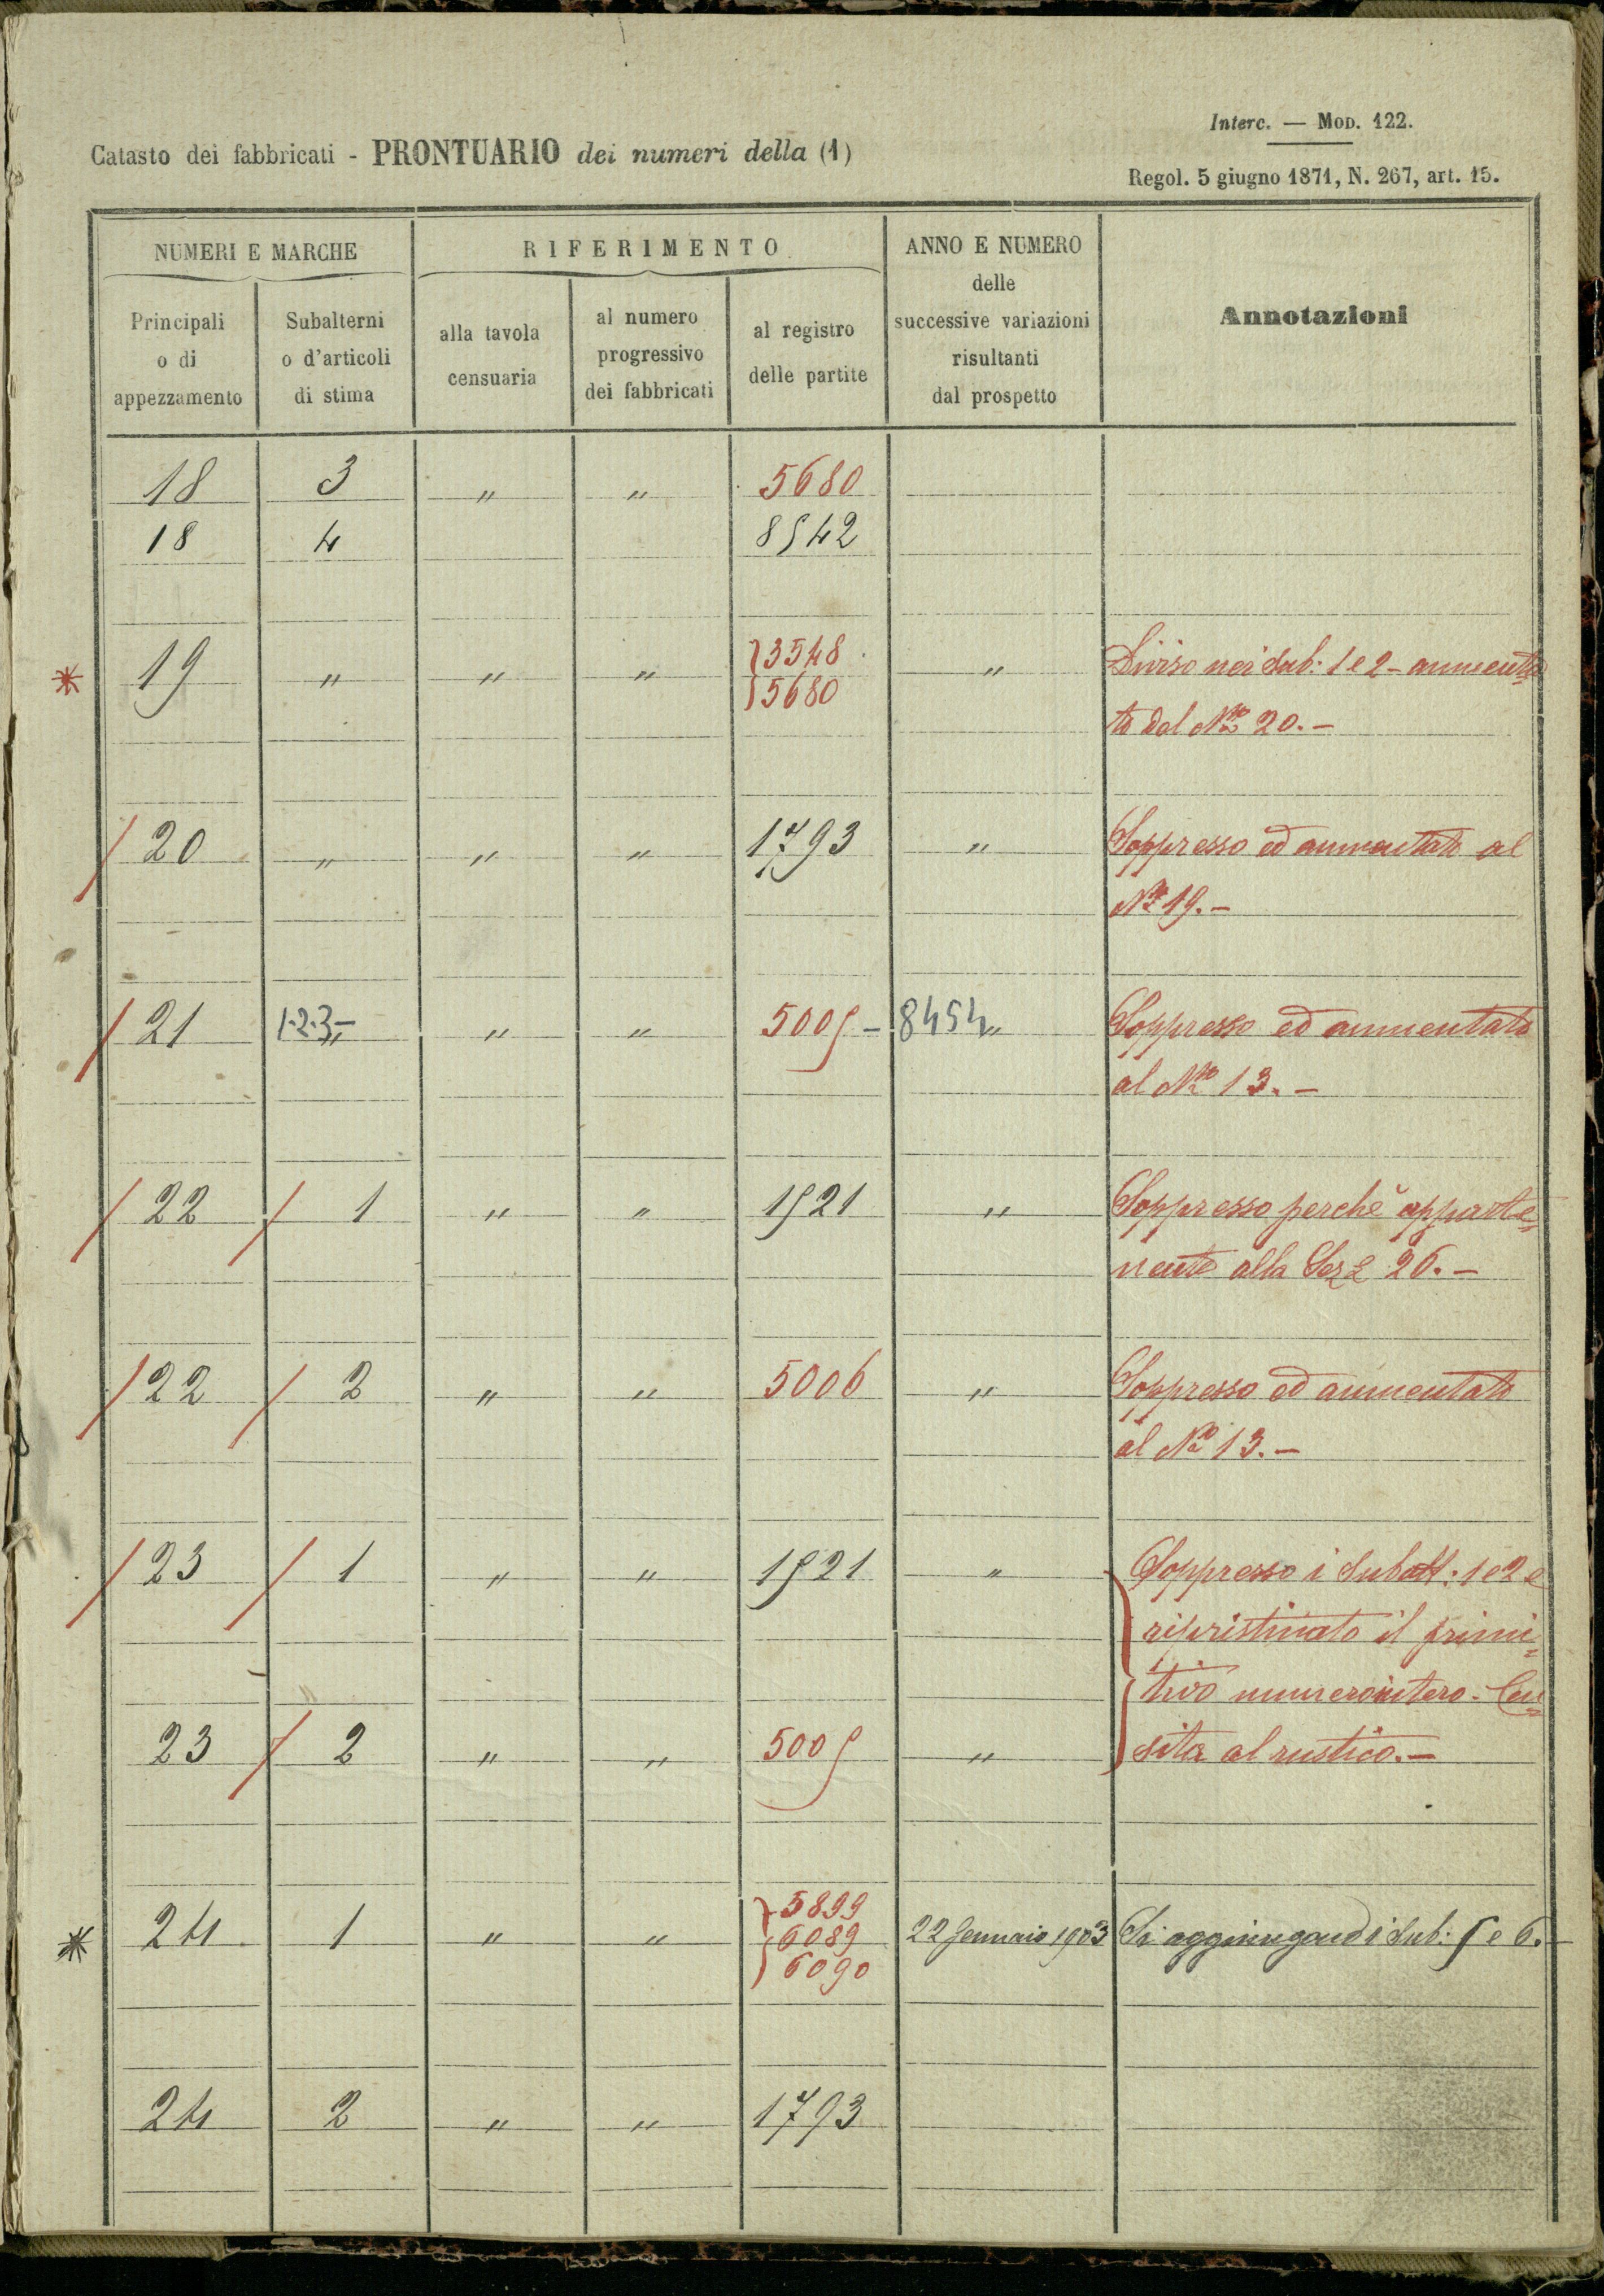 Interc. — Mod. 122.
Catasto dei fabbricati - PRONTUARIO dei numeri della (1)
Regol. 5 giugno 1871, N. 267, art. 15.
NUMERI E MARCHE
RIFERIMENTO
ANNO E NUMERO
delle
successive variazioni
risultanti
dal prospetto
Annotazioni
Principali
o di
appezzamento
Subalterni
o d'articoli
di stima
alla tavola
censuaria
al numero
progressivo
dei fabbricati
al registro
delle partite
18 3 " " 5680
18 4 8542
* 19 " " " 3548 " Diviso nei Sub: 1 e 2 - aumenta=
5680 to dal No 20. -
20 " " " 1793 " Soppresso ed aumentato al
No 19. -
21 1-2-3 - " " " 5005 - 8454 " Soppresso ed aumentato
al No 13. -
22 1 " " 1521 " Soppresso perchè apparte=
nente alla Sez. 26. -
22 2 " " 5006 " Soppresso ed aumentato
al No 13. -
23 1 " " 1521 " Soppresso i Subalt: 1 e 2 e
ripristinato il primi=
tivo numero intero. - Cen=
23 2 " " 5005 " sita al rustico. -
* 24 1 " " 5899 22 Gennaio 1903 Si aggiungano i Sub: 5 e 6. -
6089
6090
24 2 " " 1793